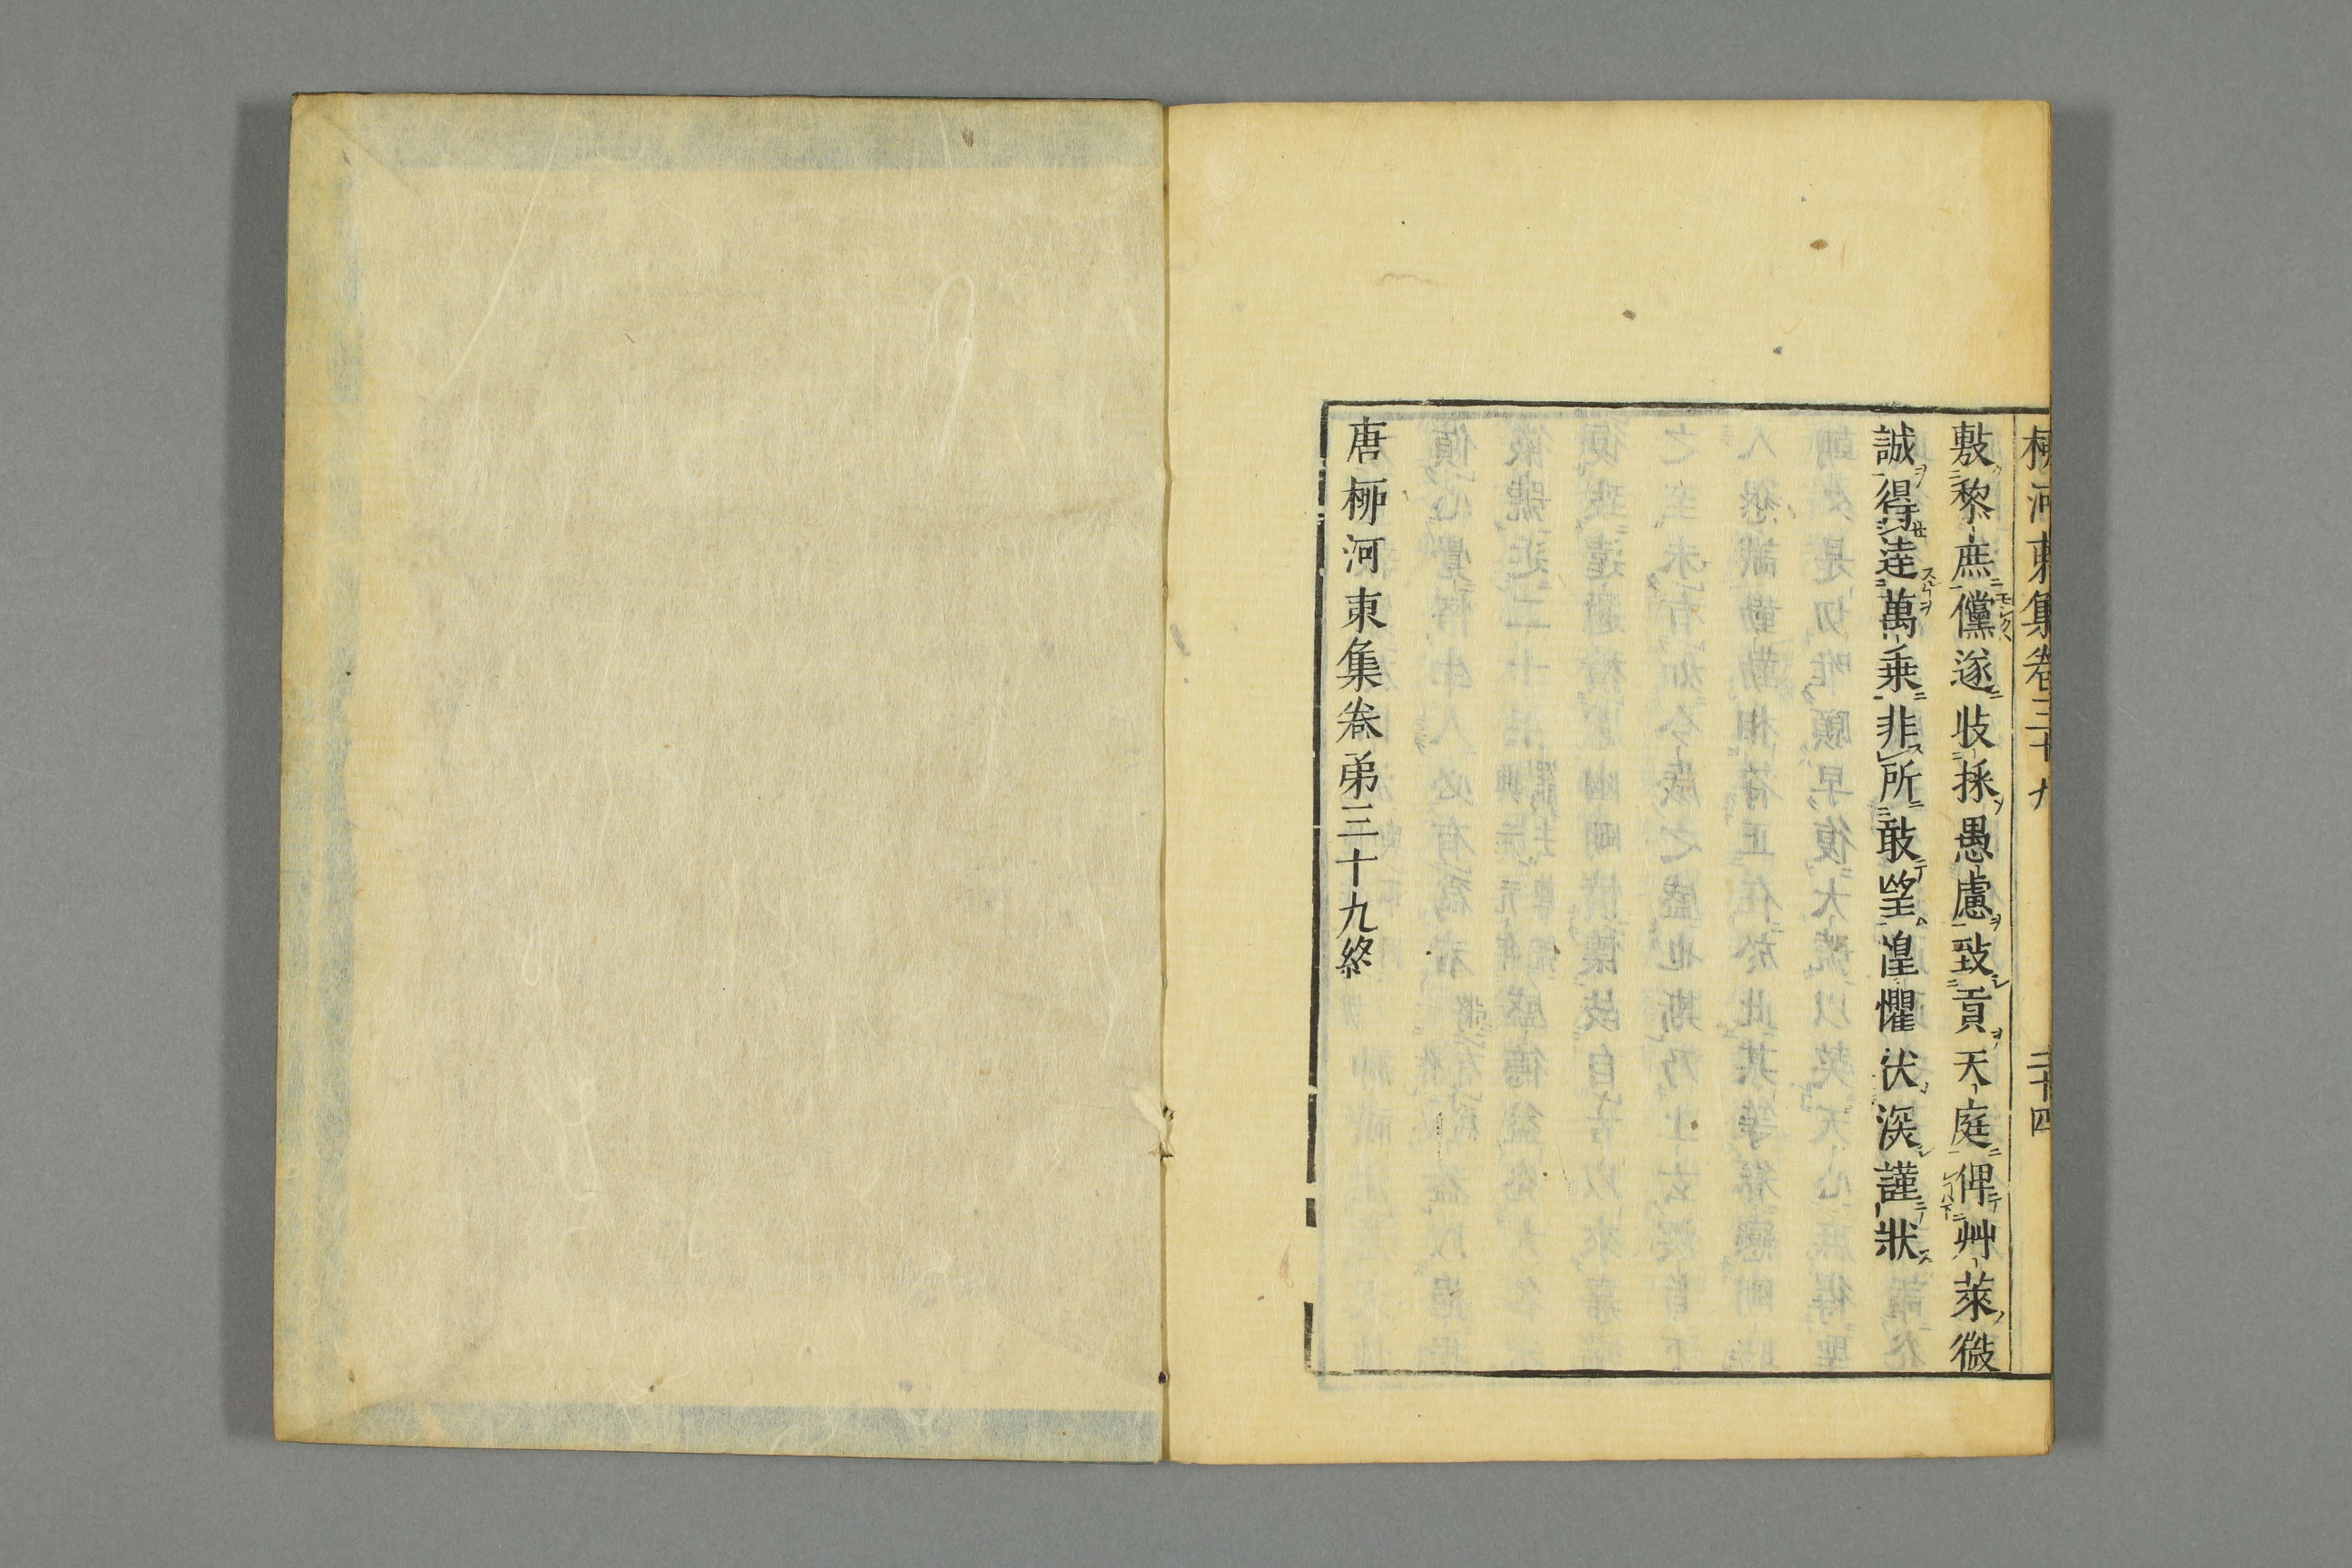 柳河東集卷三十九 二十四
敷黎庶儻遂收採愚慮致貢天庭俾艸萊微
誠得達萬乗非所敢望惶懼伏深謹狀
唐柳河東集卷弟三十九終